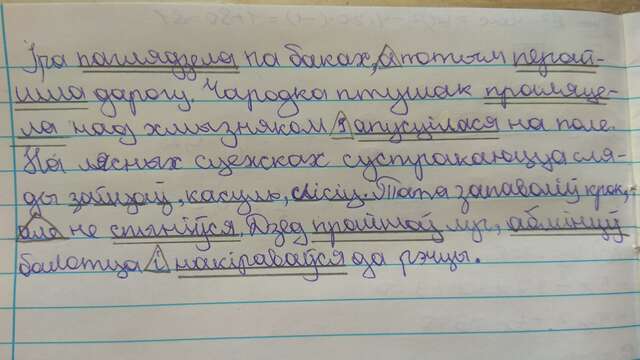 Іра паглядзела па баках, а потым перай-
шла дарогу. Чародка птушак праляце-
ла над хмызняком і апусцілася на поле.
На лясных сцежках сустракаюцца сля-
ды зайцаў, касуль, лісіц. Тата запаволіў крок,
але не спыніўся. Дзед прайшоў луг, абмінуў
балотца і накіраваўся да рэчцы.